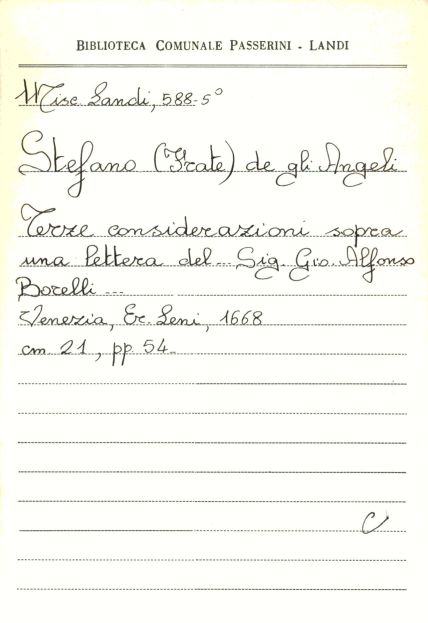 BIBLIOTECA COMUNALE PASSERINI - LANDI
Misc. Landi, 588-5°
Stefano (Frate) de gli Angeli
Terze considerazioni sopra
una lettera del... Sig. Gio. Alfonso
Borelli ...
Venezia, Er. Leni, 1668
cm. 21, pp. 54.
C